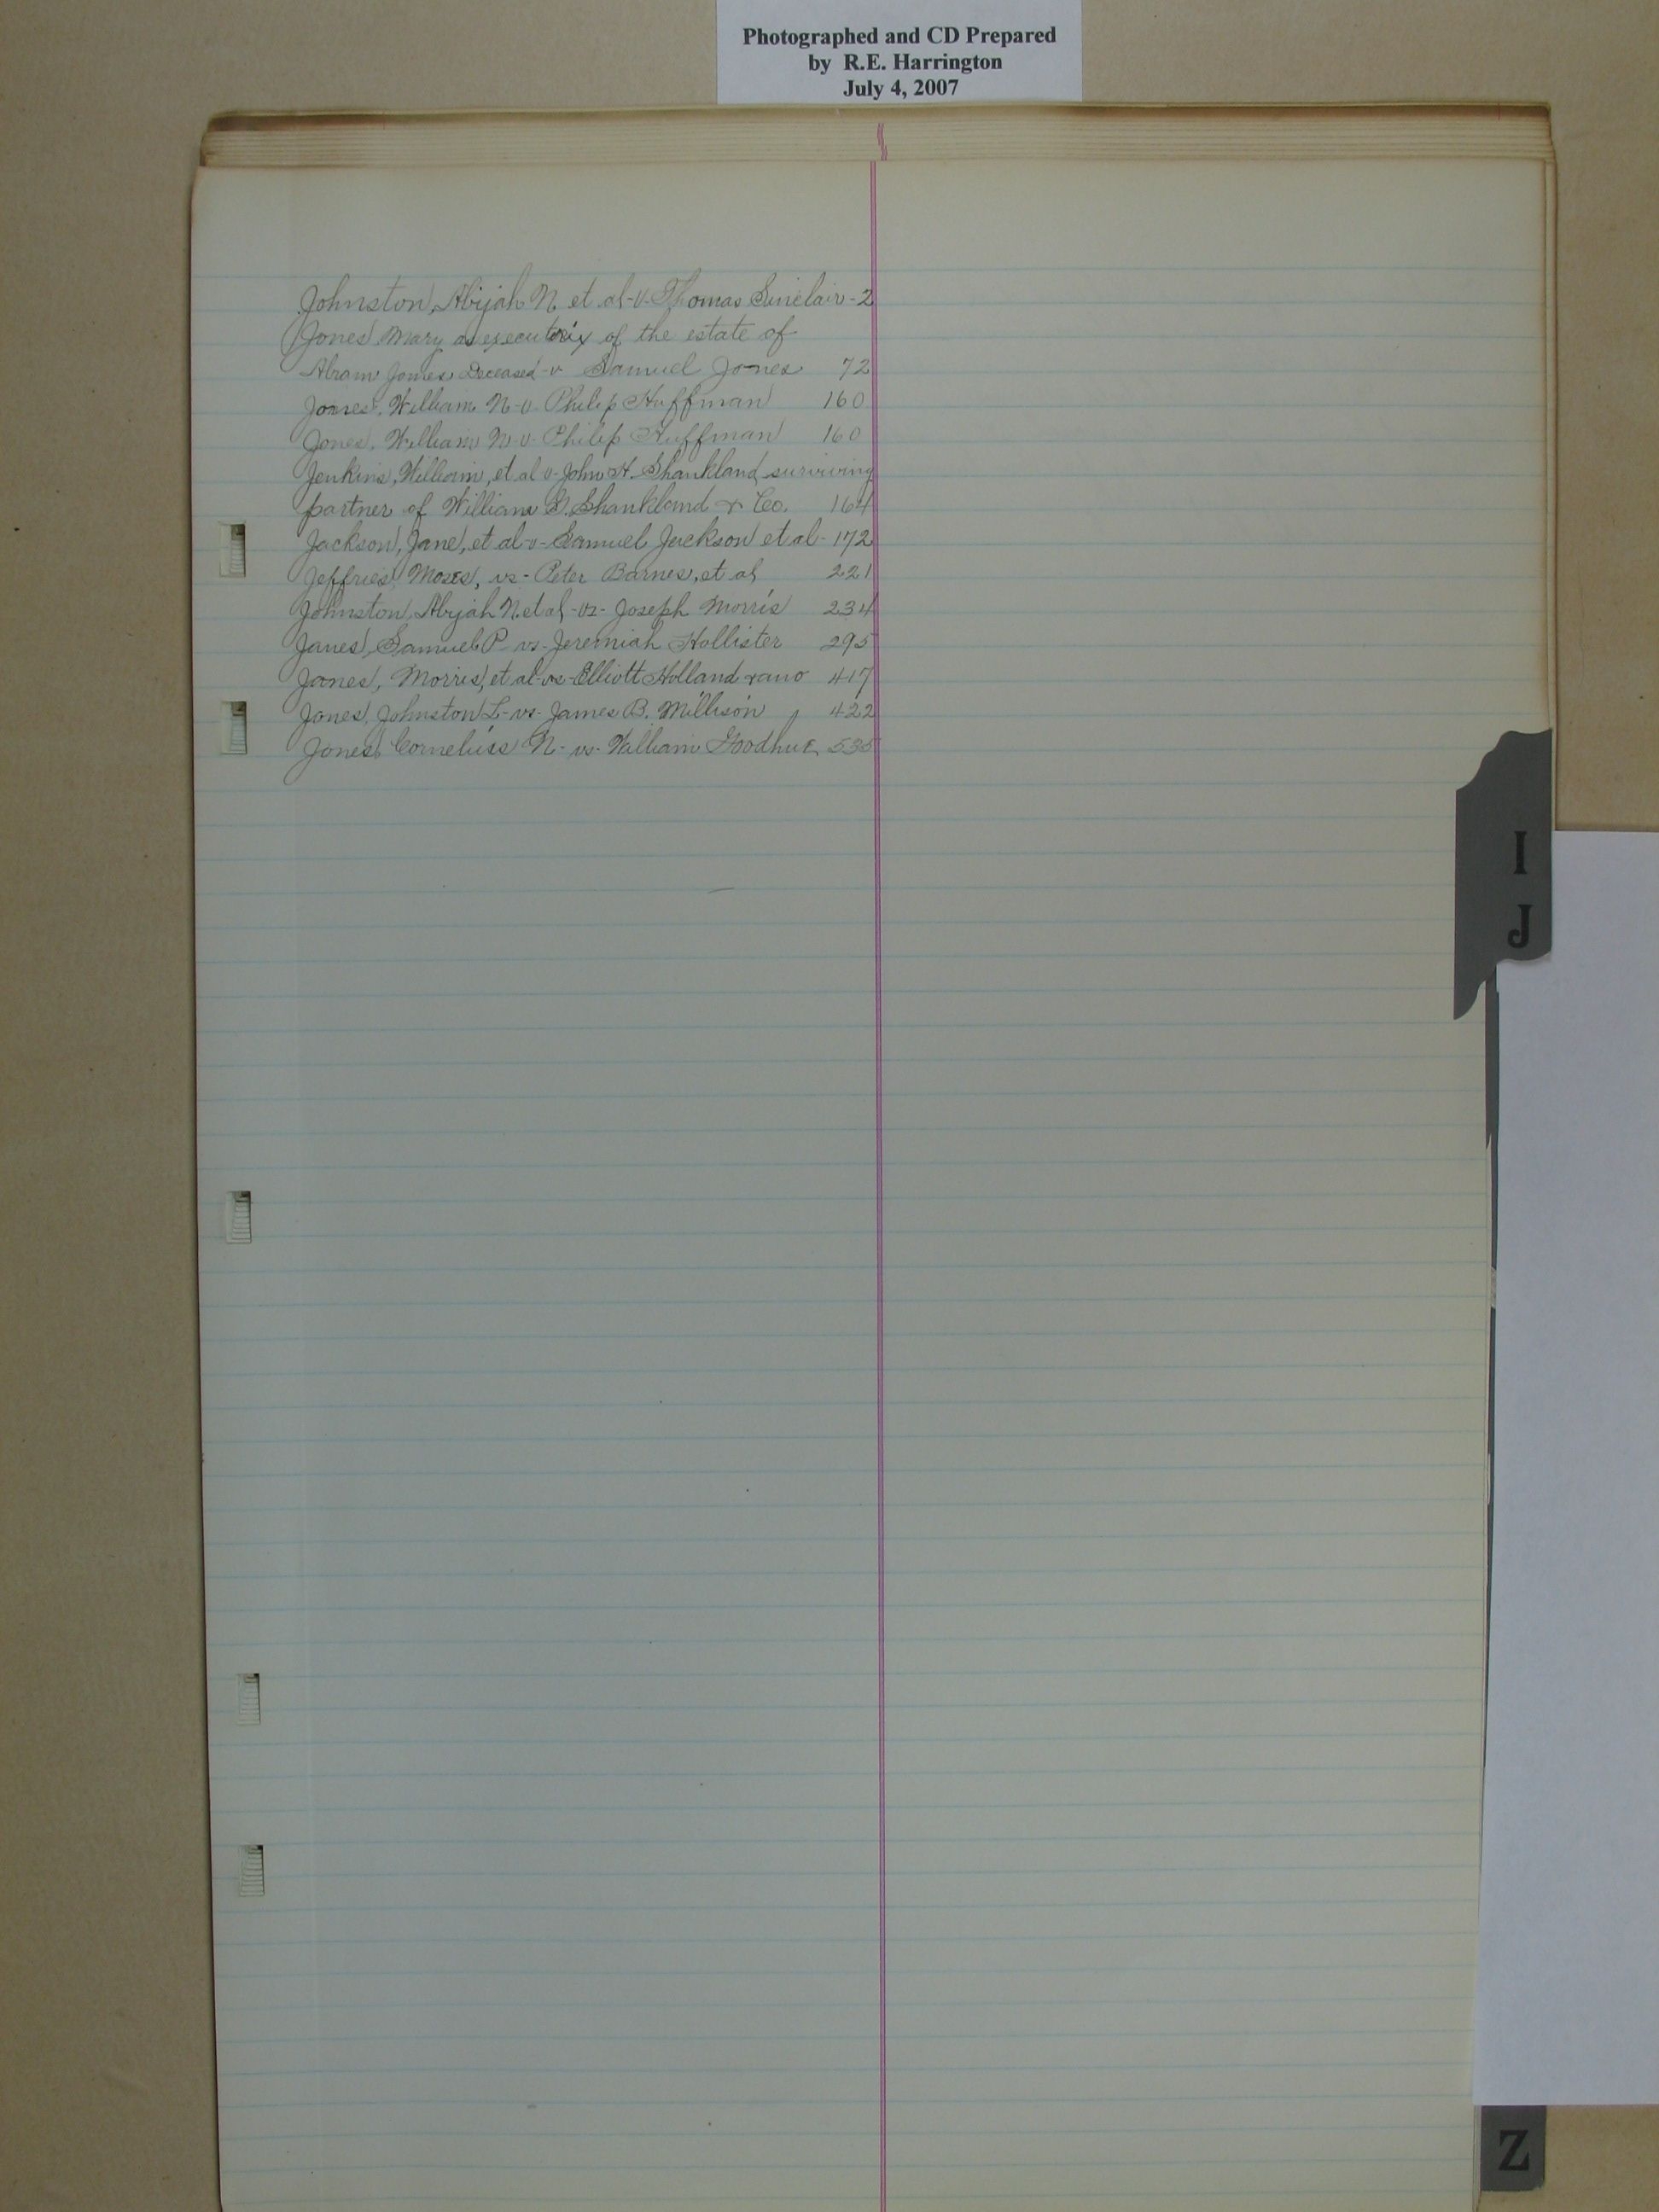 Photographed and CD Prepared
by R.E. Harrington
July 4, 2007
Johnston, Abijah N. et al -v- Thomas Sinclair - 2
Jones Mary as executrix of the estate of
Abram Jones Deceased -v Samuel Jones 72
Jones, William N -v- Philip Huffman 160
Jones, William N -v- Philip Huffman 160
Jenkins, William, et al v- John H. Shankland surviving
partner of William G. Shankland & Co. 164
Jackson, Jane, et al -v- Samuel Jackson et al - 172
Jeffries, Moses, vs- Peter Barnes, et al 221
Johnston, Abijah N. et al -vs- Joseph Morris 234
Janes, Samuel P vs- Jeremiah Hollister 295
Jones, Morris, et al -vs- Elliott Holland & ano 417
Jones, Johnston L- vs- James B. Millison 422
Jones, Cornelius N- vs- William Goodhue 535
I
J
Z